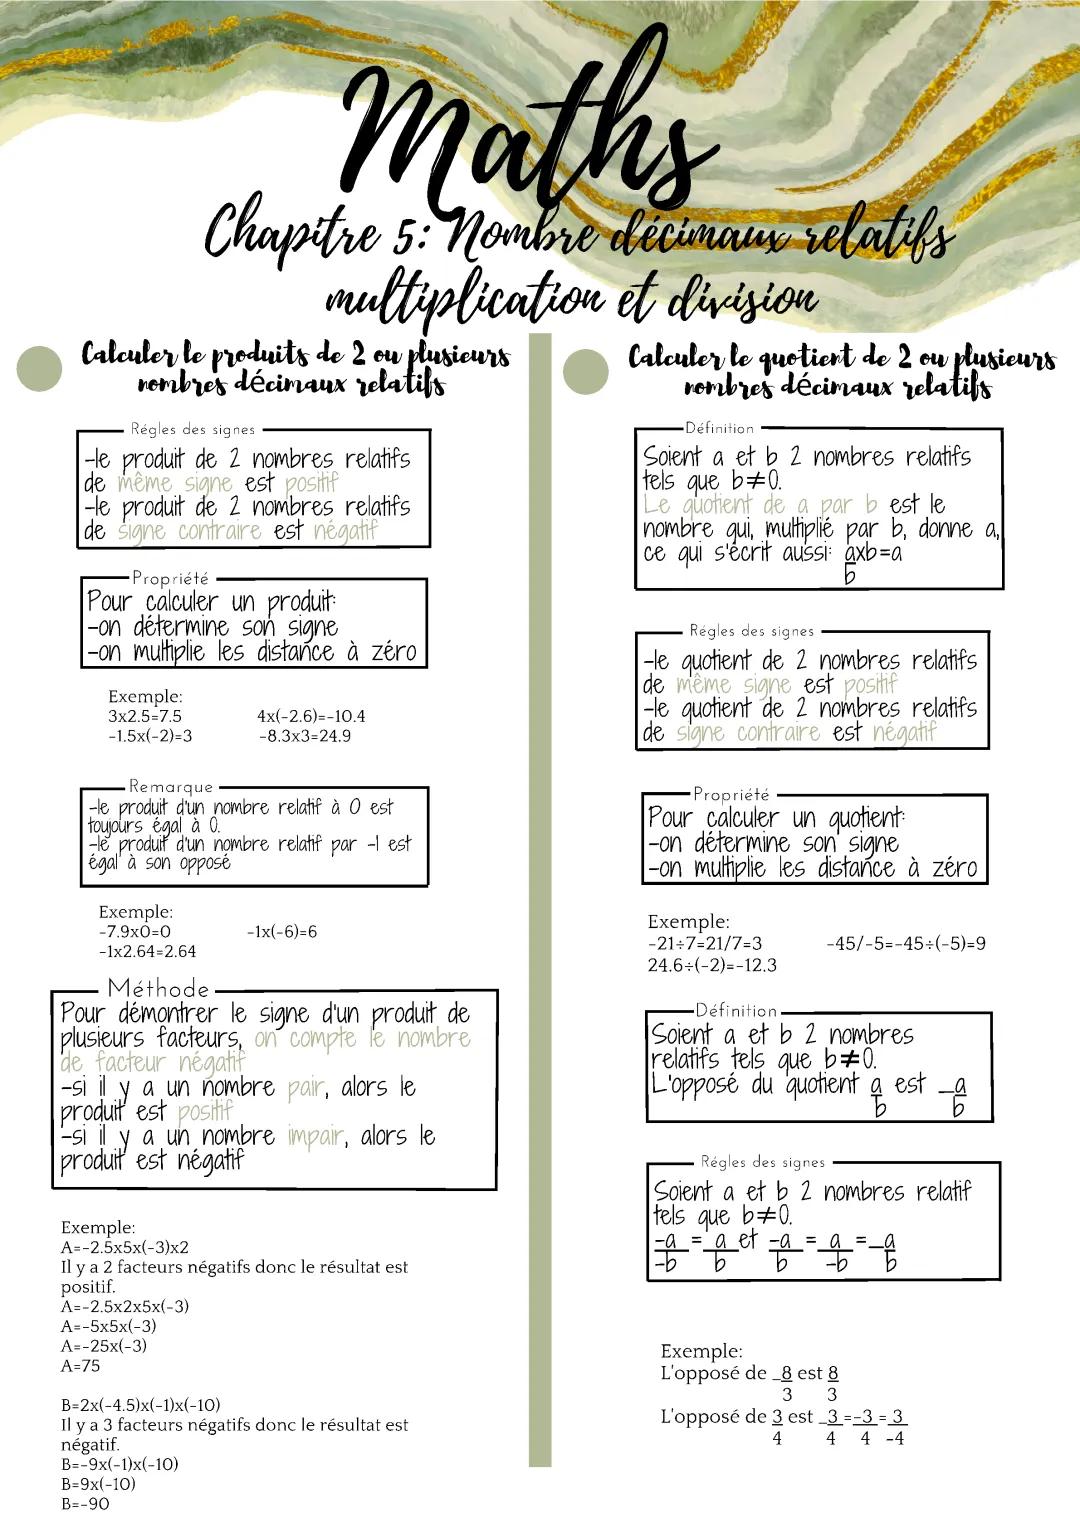 Maths
Chapitre 5: Nombre décimaux relatifs
multiplication et division
Calculer le produits de 2 ou plusieurs
nombres décimaux relatifs
Régles des signes
-le produit de 2 nombres relatifs
de même signe est positif
-le produit de 2 nombres relatifs
de signe contraire est négatif
Propriété
Pour calculer un produit:
-on détermine son signe
-on multiplie les distance à zéro
Exemple:
3x2.5=7.5 4x(-2.6)=-10.4
-1.5x(-2)=3 -8.3x3=24.9
Remarque
-le produit d'un nombre relatif à 0 est
toujours égal à 0.
-le produit d'un nombre relatif par -1 est
égal à son opposé
Exemple:
-7.9x0=0 -1x(-6)=6
-1x2.64=2.64
Méthode
Pour démontrer le signe d'un produit de
plusieurs facteurs, on compte le nombre
de facteur négatif
-si il y a un nombre pair, alors le
produit est positif
-si il y a un nombre impair, alors le
produit est négatif
Exemple:
A=-2.5x5x(-3)x2
Il y a 2 facteurs négatifs donc le résultat est
positif.
A=-2.5x2x5x(-3)
A=-5x5x(-3)
A=-25x(-3)
A=75
B=2x(-4.5)x(-1)x(-10)
Il y a 3 facteurs négatifs donc le résultat est
négatif.
B=-9x(-1)x(-10)
B=9x(-10)
B=-90
Calculer le quotient de 2 ou plusieurs
nombres décimaux relatifs
Définition
Soient a et b 2 nombres relatifs
tels que b≠0.
Le quotient de a par b est le
nombre qui, multiplié par b, donne a,
ce qui s'écrit aussi: axb=a
b
Régles des signes
-le quotient de 2 nombres relatifs
de même signe est positif
-le quotient de 2 nombres relatifs
de signe contraire est négatif
Propriété
Pour calculer un quotient:
-on détermine son signe
-on multiplie les distance à zéro
Exemple:
-21÷7=21/7=3 -45/-5=-45÷(-5)=9
24.6÷(-2)=-12.3
Définition
Soient a et b 2 nombres
relatifs tels que b≠0.
L'opposé du quotient a est _a
b b
Régles des signes
Soient a et b 2 nombres relatif
tels que b≠0.
-a = a et -a = a =_a
-b b b -b b
Exemple:
L'opposé de _8 est 8
3 3
L'opposé de 3 est _3 =-3 = 3
4 4 4 -4